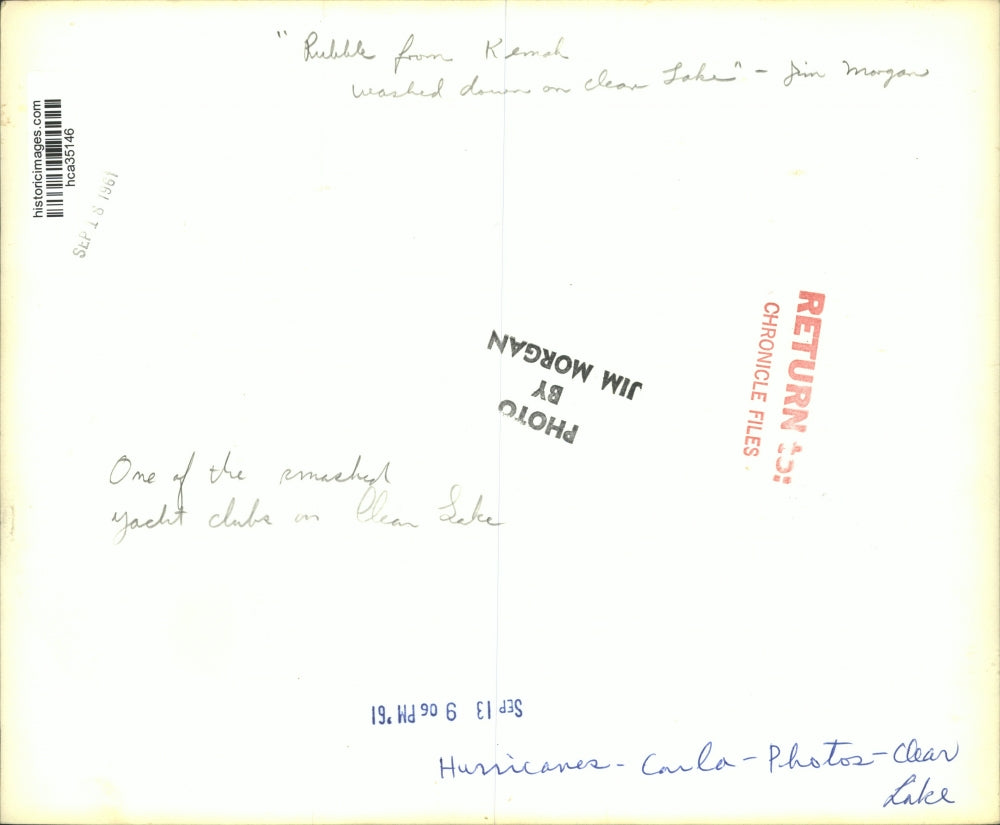 " Rubble from Kemah
washed down on Clear Lake" - Jim Morgan
historicimages.com
hca35146
SEP 18 1961
PHOTO
BY
JIM MORGAN
RETURN
CHRONICLE FILES
One of the smashed
yacht clubs on Clear Lake
SEP 13 9 06 PM '61
Hurricanes - Carla - Photos - Clear
Lake